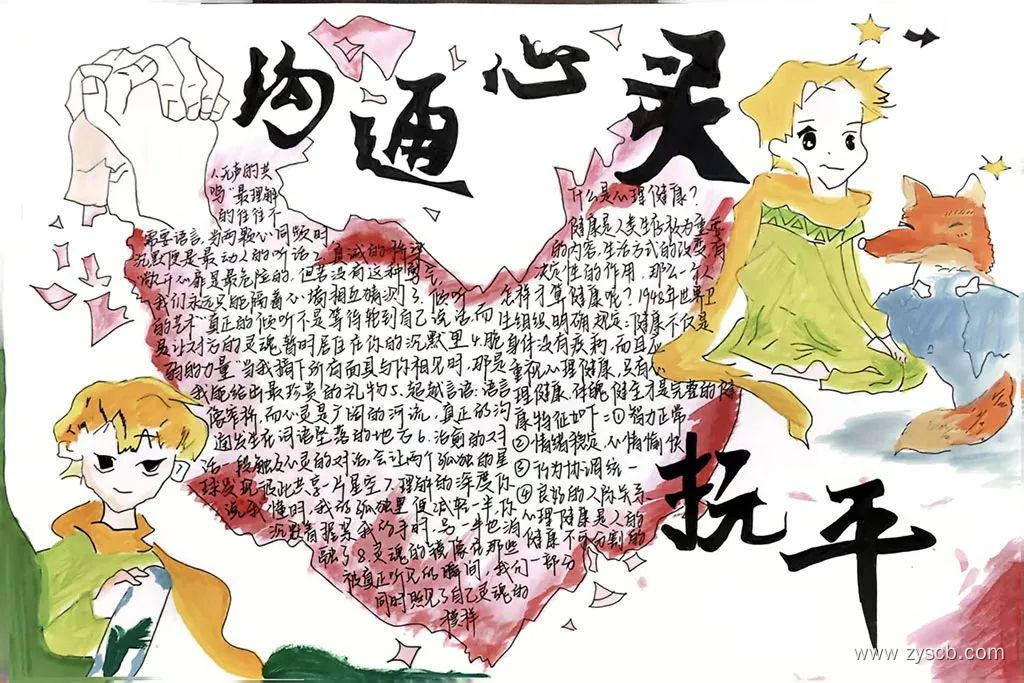 沟通心灵
抚平
1.无声的共
鸣"最理解
的往往不
需要语言,当两颗心同频时
沉默便是最动人的听话2.真诚的
"敞开心扉是最危险的,但若没有这种
我们永远只能隔着心墙相互猜测3.倾听
的艺术"真正的倾听不是等待轮到自己说话而
是让对方的灵魂暂时居住在你的沉默里4.脆
弱的力量"当我摘下所有面具与你相见时,那是
我能给出最珍贵的礼物5.超越言语:语言
像窄桥,而心灵是广阔的河流,真正的沟
通发生在词语坠落的地方6.治愈的对
话一段触及心灵的对话,会让两个孤独的星
球发现彼此共享一片星空7.理解的深度你
说我懂时,我的孤独里便减轻一半,你
沉默着握紧我的手时,另一半也消
融了8.灵魂的镜像在那些
被真正听见的瞬间,我们一部分
同时照见了自己灵魂的
模样
什么是心理健康?
健康是人类生存极为重要
的内容,生活方式的改变,有
决定性的作用,那么一个人
怎样才算健康呢?1948年世界卫
生组织明确规定:健康不仅是
身体没有疾病,而且
重视心理健康,只有心
理健康、体魄健全才是完整的健
康特征如下:①智力正常
②情绪稳定、心情愉快
③行为协调统一
④良好的人际关系
心理健康是人的
健康不可分割的
www.zyscb.com